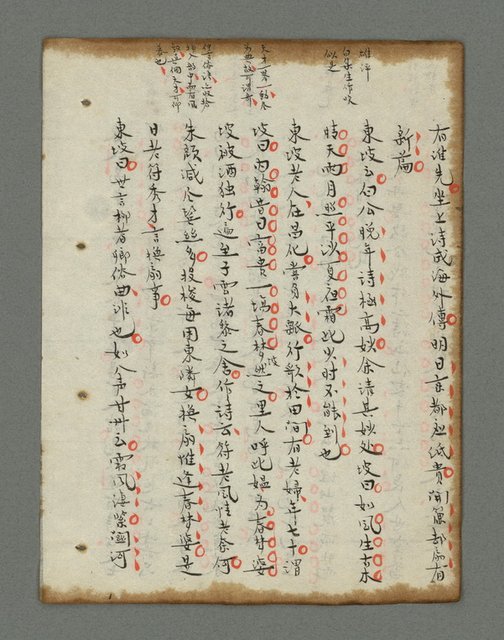 有誰先坐上詩成海外傳明日京都紙貴開簾扇有
新篇
東坡云白公晚年詩極高妙余請其妙處坡曰如風生古木
晴天雨月照平沙夏夜霜此少时不能到也
東坡老人在昌化嘗負大瓢行歌於田间有老婦年七十謂
坡曰內翰昔日富貴一場春梦坡然之里人呼此媪为春梦婆
坡被酒独行遍至子雲诸黎之舍作诗云符老風情老奈何
朱顏減尽鬢絲多投梭每困東隣女換扇惟逢春梦婆是
日老符秀才言換扇事
東坡曰世言柳耆卿俗曲非也如八声甘州云霜风凄紧關河
雄渾
似之